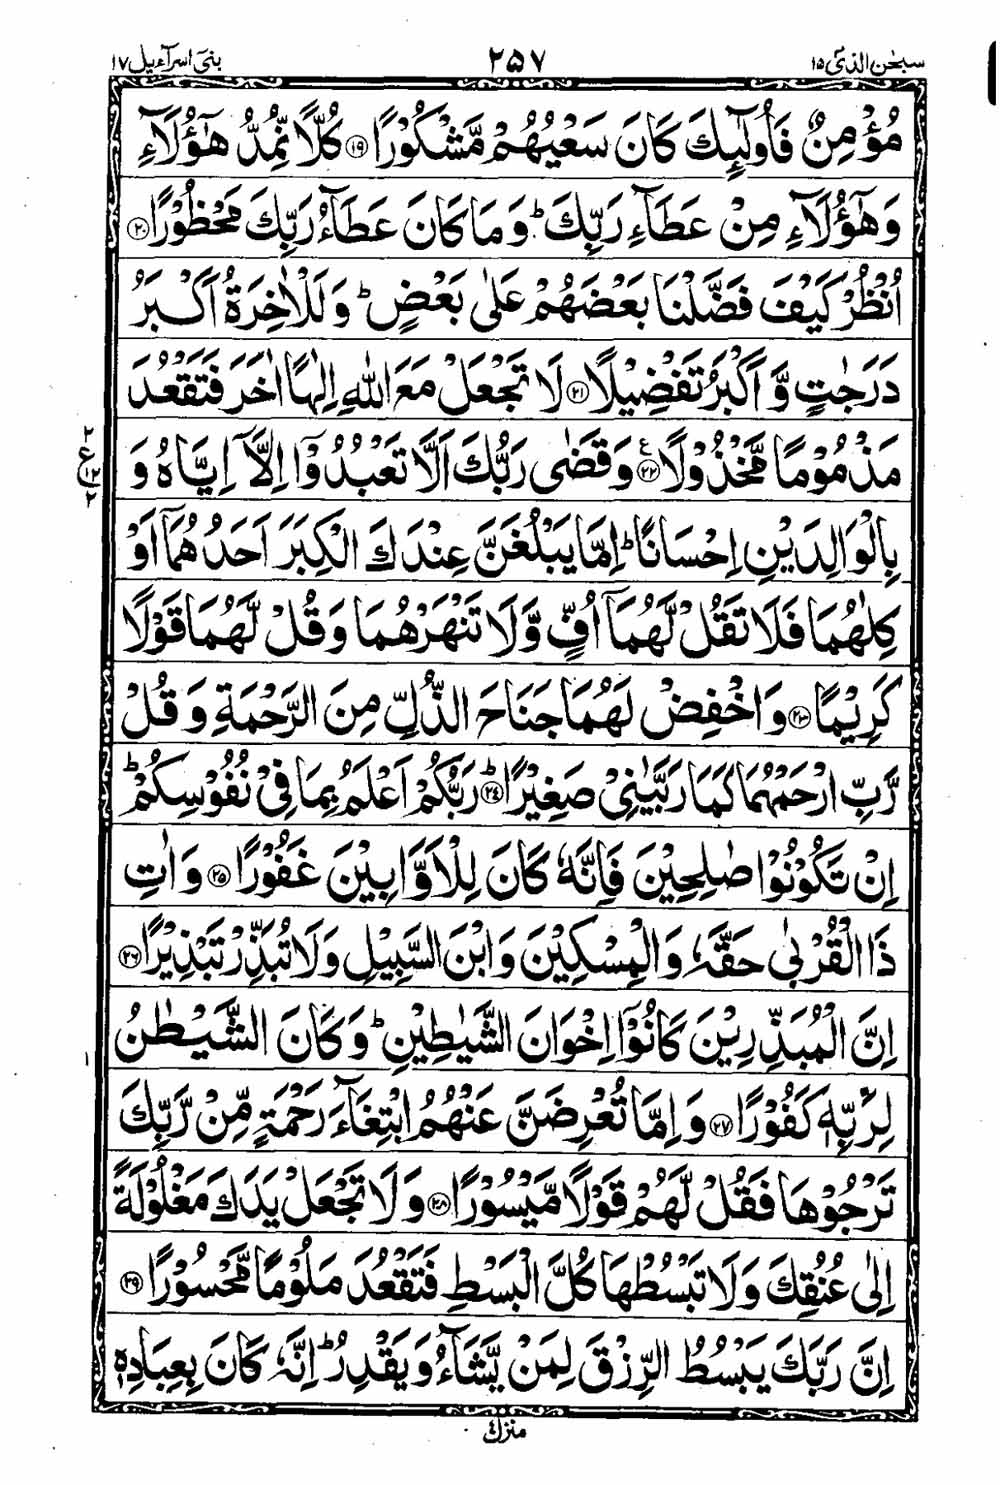 سبحٰن الذیٓ ۱۵
۲۵۷
بنیٓ اسرآءیل ۱۷
مُؤْمِنٌ فَاُولٰٓئِكَ كَانَ سَعْيُهُمْ مَّشْكُوْرًا ﴿۱۹﴾ كُلًّا نُّمِدُّ هٰٓؤُلَآءِ
وَهٰٓؤُلَآءِ مِنْ عَطَآءِ رَبِّكَ ؕ وَمَا كَانَ عَطَآءُ رَبِّكَ مَحْظُوْرًا ﴿۲۰﴾
اُنْظُرْ كَيْفَ فَضَّلْنَا بَعْضَهُمْ عَلٰى بَعْضٍ ؕ وَلَلْاٰخِرَةُ اَكْبَرُ
دَرَجٰتٍ وَّاَكْبَرُ تَفْضِيْلًا ﴿۲۱﴾ لَا تَجْعَلْ مَعَ اللّٰهِ اِلٰهًا اٰخَرَ فَتَقْعُدَ
مَذْمُوْمًا مَّخْذُوْلًا ﴿۲۲﴾ ع وَقَضٰى رَبُّكَ اَلَّا تَعْبُدُوْٓا اِلَّآ اِيَّاهُ وَ
۲
ع
۱۲
۲
بِالْوَالِدَيْنِ اِحْسَانًا ؕ اِمَّا يَبْلُغَنَّ عِنْدَكَ الْكِبَرَ اَحَدُهُمَآ اَوْ
كِلٰهُمَا فَلَا تَقُلْ لَّهُمَآ اُفٍّ وَّلَا تَنْهَرْهُمَا وَقُلْ لَّهُمَا قَوْلًا
كَرِيْمًا ﴿۲۳﴾ وَاخْفِضْ لَهُمَا جَنَاحَ الذُّلِّ مِنَ الرَّحْمَةِ وَقُلْ
رَّبِّ ارْحَمْهُمَا كَمَا رَبَّيٰنِيْ صَغِيْرًا ؕ ﴿۲۴﴾ رَبُّكُمْ اَعْلَمُ بِمَا فِيْ نُفُوْسِكُمْ ؕ
اِنْ تَكُوْنُوْا صٰلِحِيْنَ فَاِنَّهٗ كَانَ لِلْاَوَّابِيْنَ غَفُوْرًا ﴿۲۵﴾ وَاٰتِ
ذَا الْقُرْبٰى حَقَّهٗ وَالْمِسْكِيْنَ وَابْنَ السَّبِيْلِ وَلَا تُبَذِّرْ تَبْذِيْرًا ﴿۲۶﴾
اِنَّ الْمُبَذِّرِيْنَ كَانُوْٓا اِخْوَانَ الشَّيٰطِيْنِ ؕ وَكَانَ الشَّيْطٰنُ
لِرَبِّهٖ كَفُوْرًا ﴿۲۷﴾ وَاِمَّا تُعْرِضَنَّ عَنْهُمُ ابْتِغَآءَ رَحْمَةٍ مِّنْ رَّبِّكَ
تَرْجُوْهَا فَقُلْ لَّهُمْ قَوْلًا مَّيْسُوْرًا ﴿۲۸﴾ وَلَا تَجْعَلْ يَدَكَ مَغْلُوْلَةً
اِلٰى عُنُقِكَ وَلَا تَبْسُطْهَا كُلَّ الْبَسْطِ فَتَقْعُدَ مَلُوْمًا مَّحْسُوْرًا ﴿۲۹﴾
اِنَّ رَبَّكَ يَبْسُطُ الرِّزْقَ لِمَنْ يَّشَآءُ وَيَقْدِرُ ؕ اِنَّهٗ كَانَ بِعِبَادِهٖ
منزل ٤